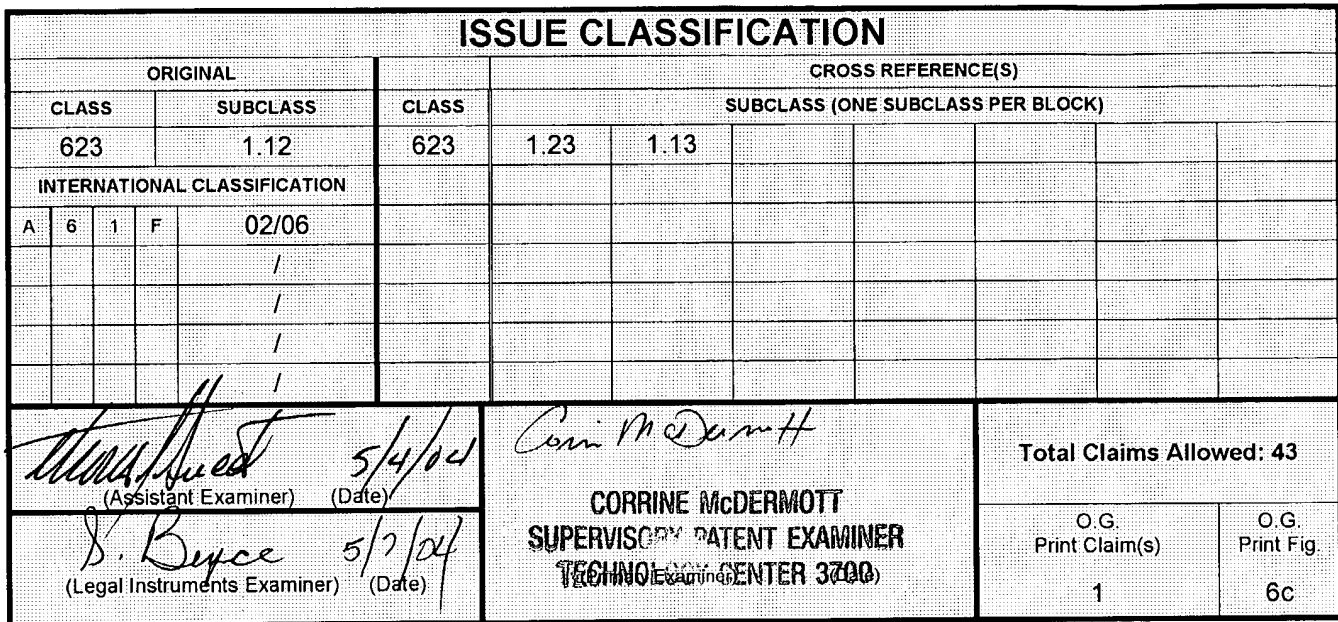 ISSUE CLASSIFICATION
ORIGINAL
CROSS REFERENCE(S)
CLASS SUBCLASS CLASS SUBCLASS (ONE SUBCLASS PER BLOCK)
623 1.12 623 1.23 1.13
INTERNATIONAL CLASSIFICATION
A 6 1 F 02/06
/
/
/
/
5/4/04
(Assistant Examiner) (Date)
S. 5/7/04
(Legal Instruments Examiner) (Date)
Corrine McDermott
CORRINE McDERMOTT
SUPERVISORY PATENT EXAMINER
TECHNOLOGY CENTER 3700
(Primary Examiner) (Date)
Total Claims Allowed: 43
O.G.
Print Claim(s)
1
O.G.
Print Fig.
6c